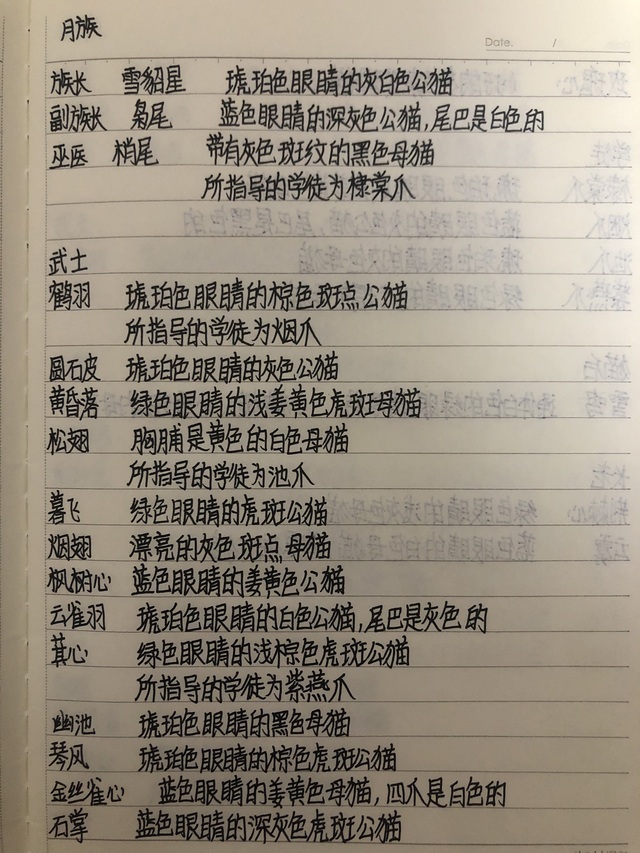 月族
Date. /
族长 雪貂星 琥珀色眼睛的灰白色公猫
副族长 枭尾 蓝色眼睛的深灰色公猫,尾巴是白色的
巫医 梢尾 带有灰色斑纹的黑色母猫
所指导的学徒为棣棠爪
武士
鹤羽 琥珀色眼睛的棕色斑点公猫
所指导的学徒为烟爪
圆石皮 琥珀色眼睛的灰色公猫
黄昏落 绿色眼睛的浅姜黄色虎斑母猫
松翅 胸脯是黄色的白色母猫
所指导的学徒为池爪
暮飞 绿色眼睛的虎斑公猫
烟翅 漂亮的灰色斑点母猫
枫树心 蓝色眼睛的姜黄色公猫
云雀羽 琥珀色眼睛的白色公猫,尾巴是灰色的
萁心 绿色眼睛的浅棕色虎斑公猫
所指导的学徒为紫燕爪
幽池 琥珀色眼睛的黑色母猫
琴风 琥珀色眼睛的棕色虎斑公猫
金丝雀心 蓝色眼睛的姜黄色母猫,四爪是白色的
石掌 蓝色眼睛的深灰色虎斑公猫